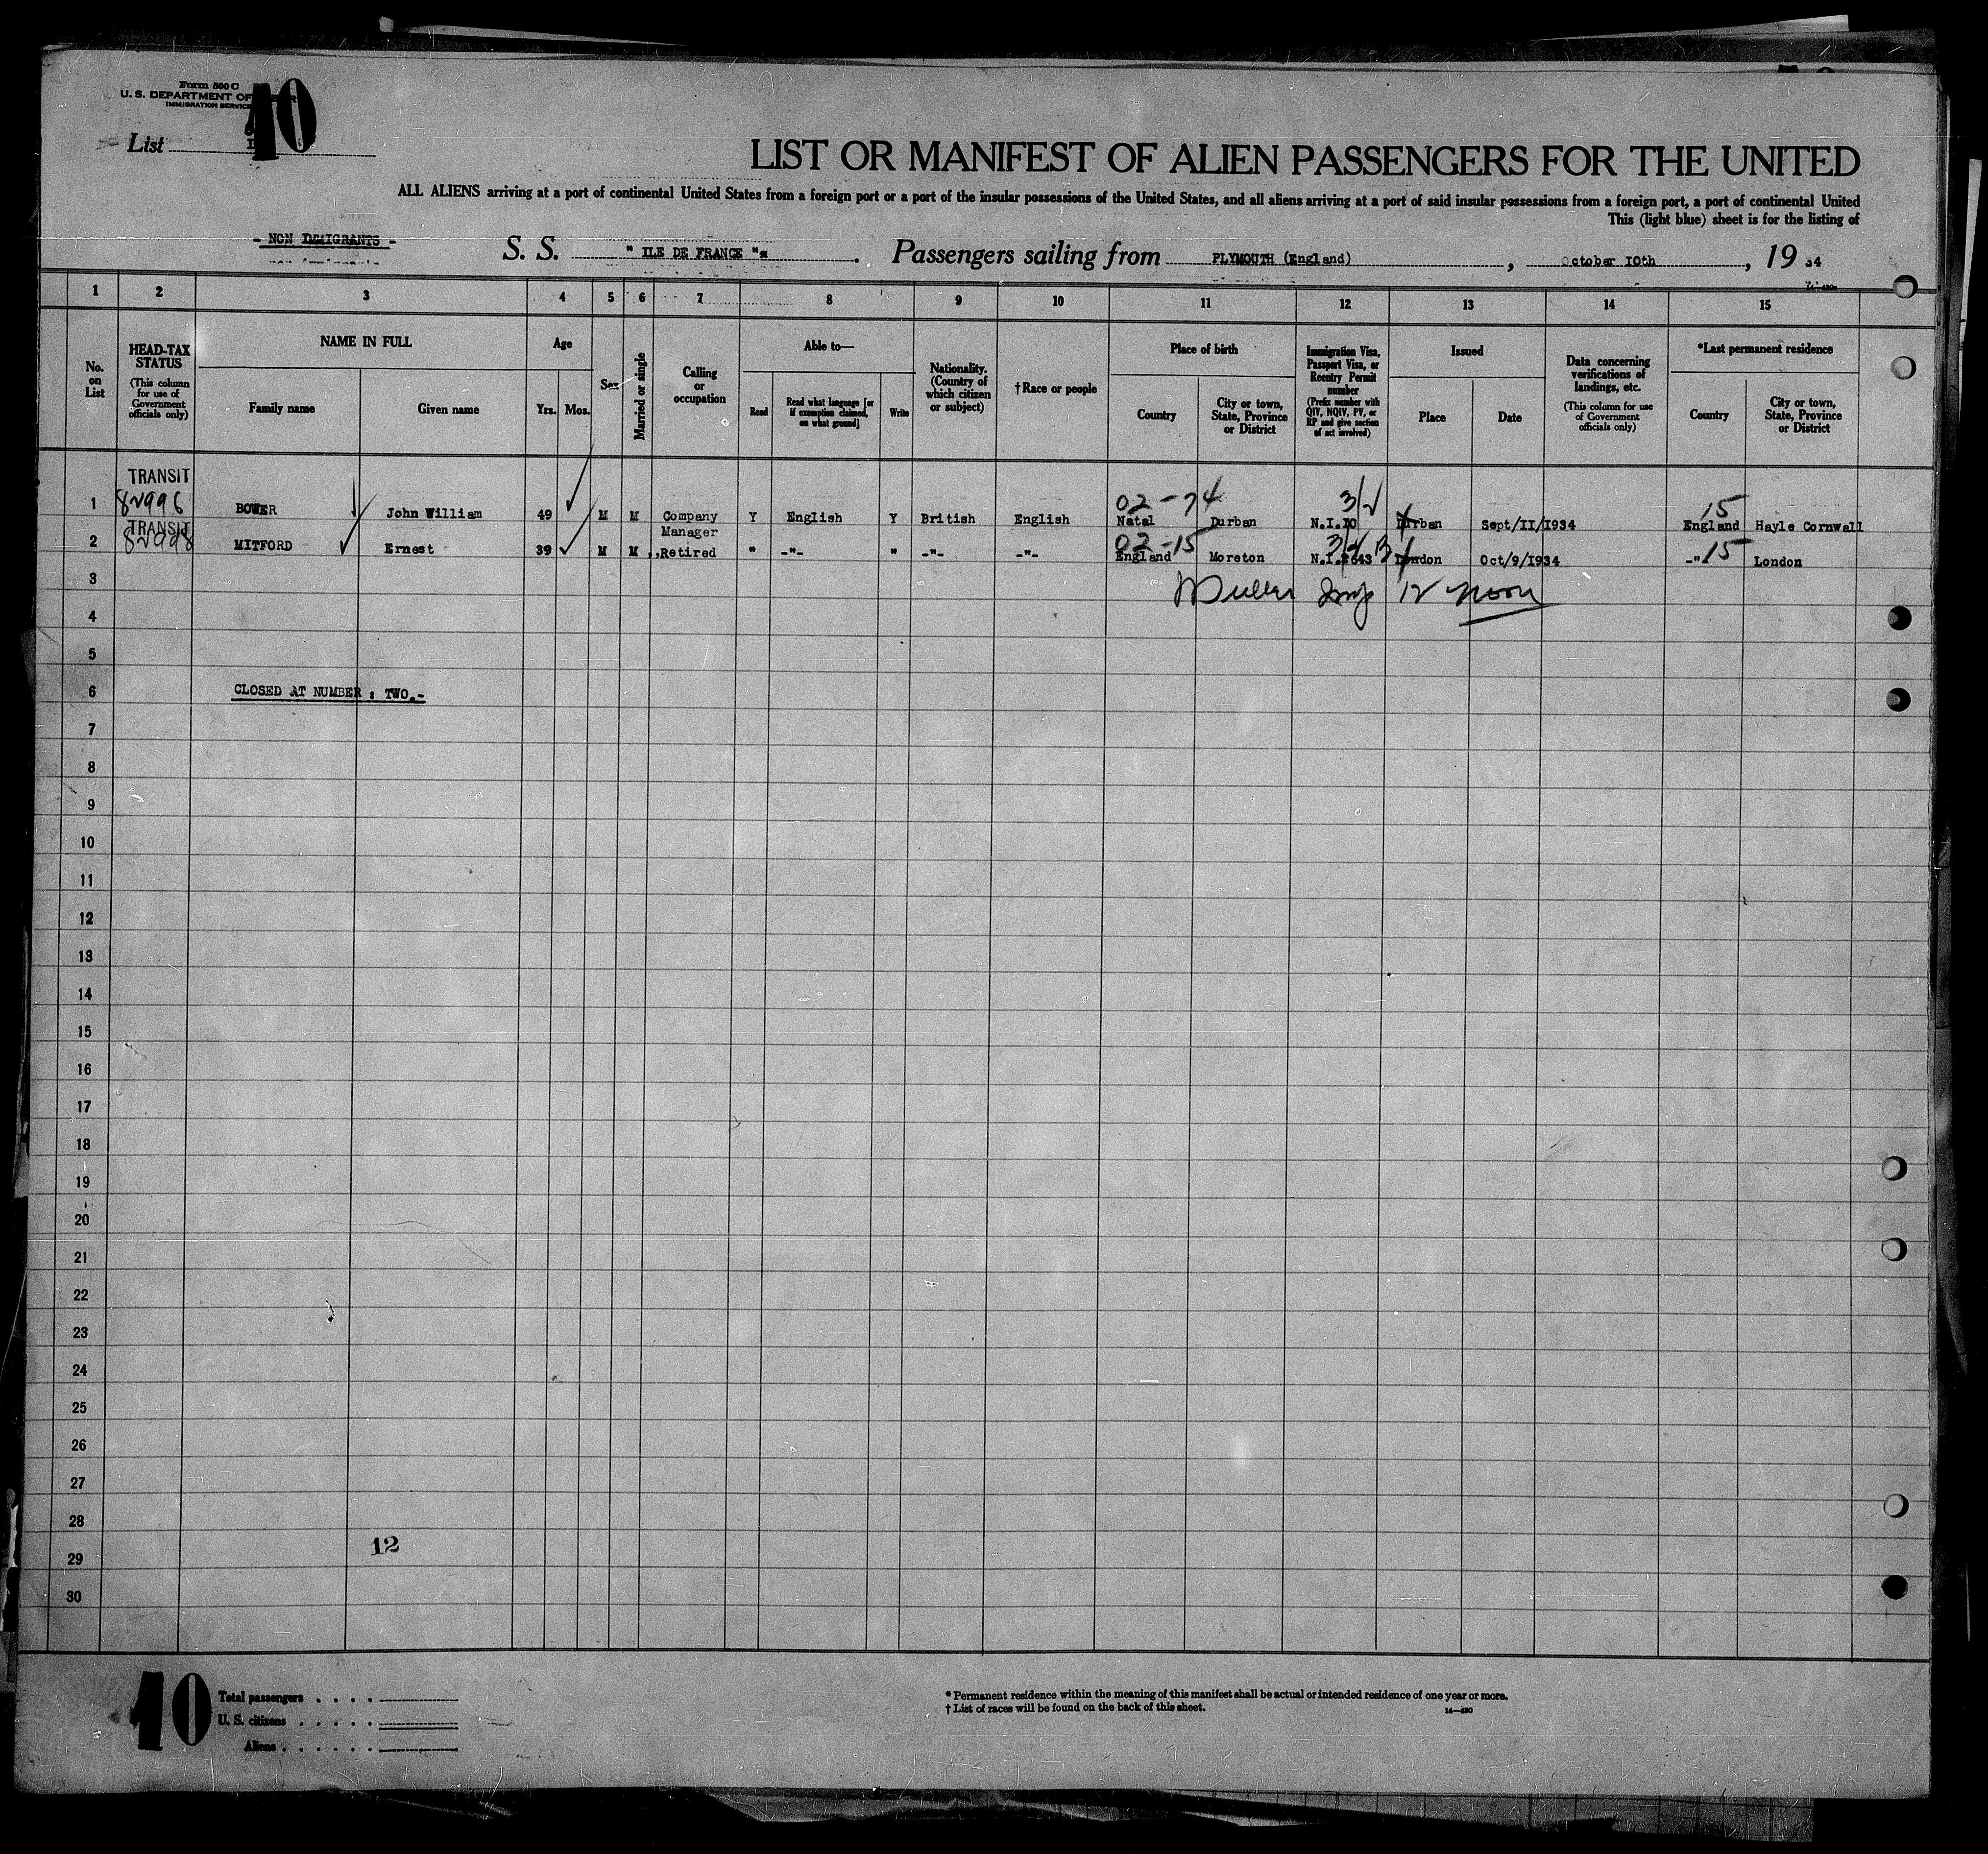 Form 500 C
U. S. DEPARTMENT OF
IMMIGRATION SERVICE
List 10
LIST OR MANIFEST OF ALIEN PASSENGERS FOR THE UNITED
ALL ALIENS arriving at a port of continental United States from a foreign port or a port of the insular possessions of the United States, and all aliens arriving at a port of said insular possessions from a foreign port, a port of continental United
This (light blue) sheet is for the listing of
- NON IMMIGRANTS -
S. S. " ILE DE FRANCE " . Passengers sailing from PLYMOUTH (England) , October 10th , 19 34
1 2 3 4 5 6 7 8 9 10 11 12 13 14 15
No. on List
HEAD-TAX STATUS
(This column for use of Government officials only)
NAME IN FULL
Family name
Given name
Age
Yrs.
Mos.
Sex
Married or single
Calling or occupation
Able to—
Read
Read what language [or if exemption claimed, on what ground]
Write
Nationality. (Country of which citizen or subject)
† Race or people
Place of birth
Country
City or town, State, Province or District
Immigration Visa, Passport Visa, or Reentry Permit number
(Prefix number with QIV, NQIV, PV, or RP and give section of act involved)
Issued
Place
Date
Data concerning verifications of landings, etc.
(This column for use of Government officials only)
*Last permanent residence
Country
City or town, State, Province or District
TRANSIT
82996
02-74
3/2
15
1 BOWER John William 49 M M Company Manager Y English Y British English Natal Durban N.I.10 Durban Sept/II/1934 England Hayle Cornwall
TRANSIT
82998
02-15
15
2 MITFORD Ernest 39 M M Retired " -"- " -"- -"- England Moreton London Oct/9/1934 -"- London
12 noon
3
4
5
6 CLOSED AT NUMBER : TWO.-
7
8
9
10
11
12
13
14
15
16
17
18
19
20
21
22
23
24
25
26
27
28
12
29
30
10
Total passengers . . . .
U. S. citizens . . . . .
Aliens . . . . . .
* Permanent residence within the meaning of this manifest shall be actual or intended residence of one year or more.
† List of races will be found on the back of this sheet.
14—430